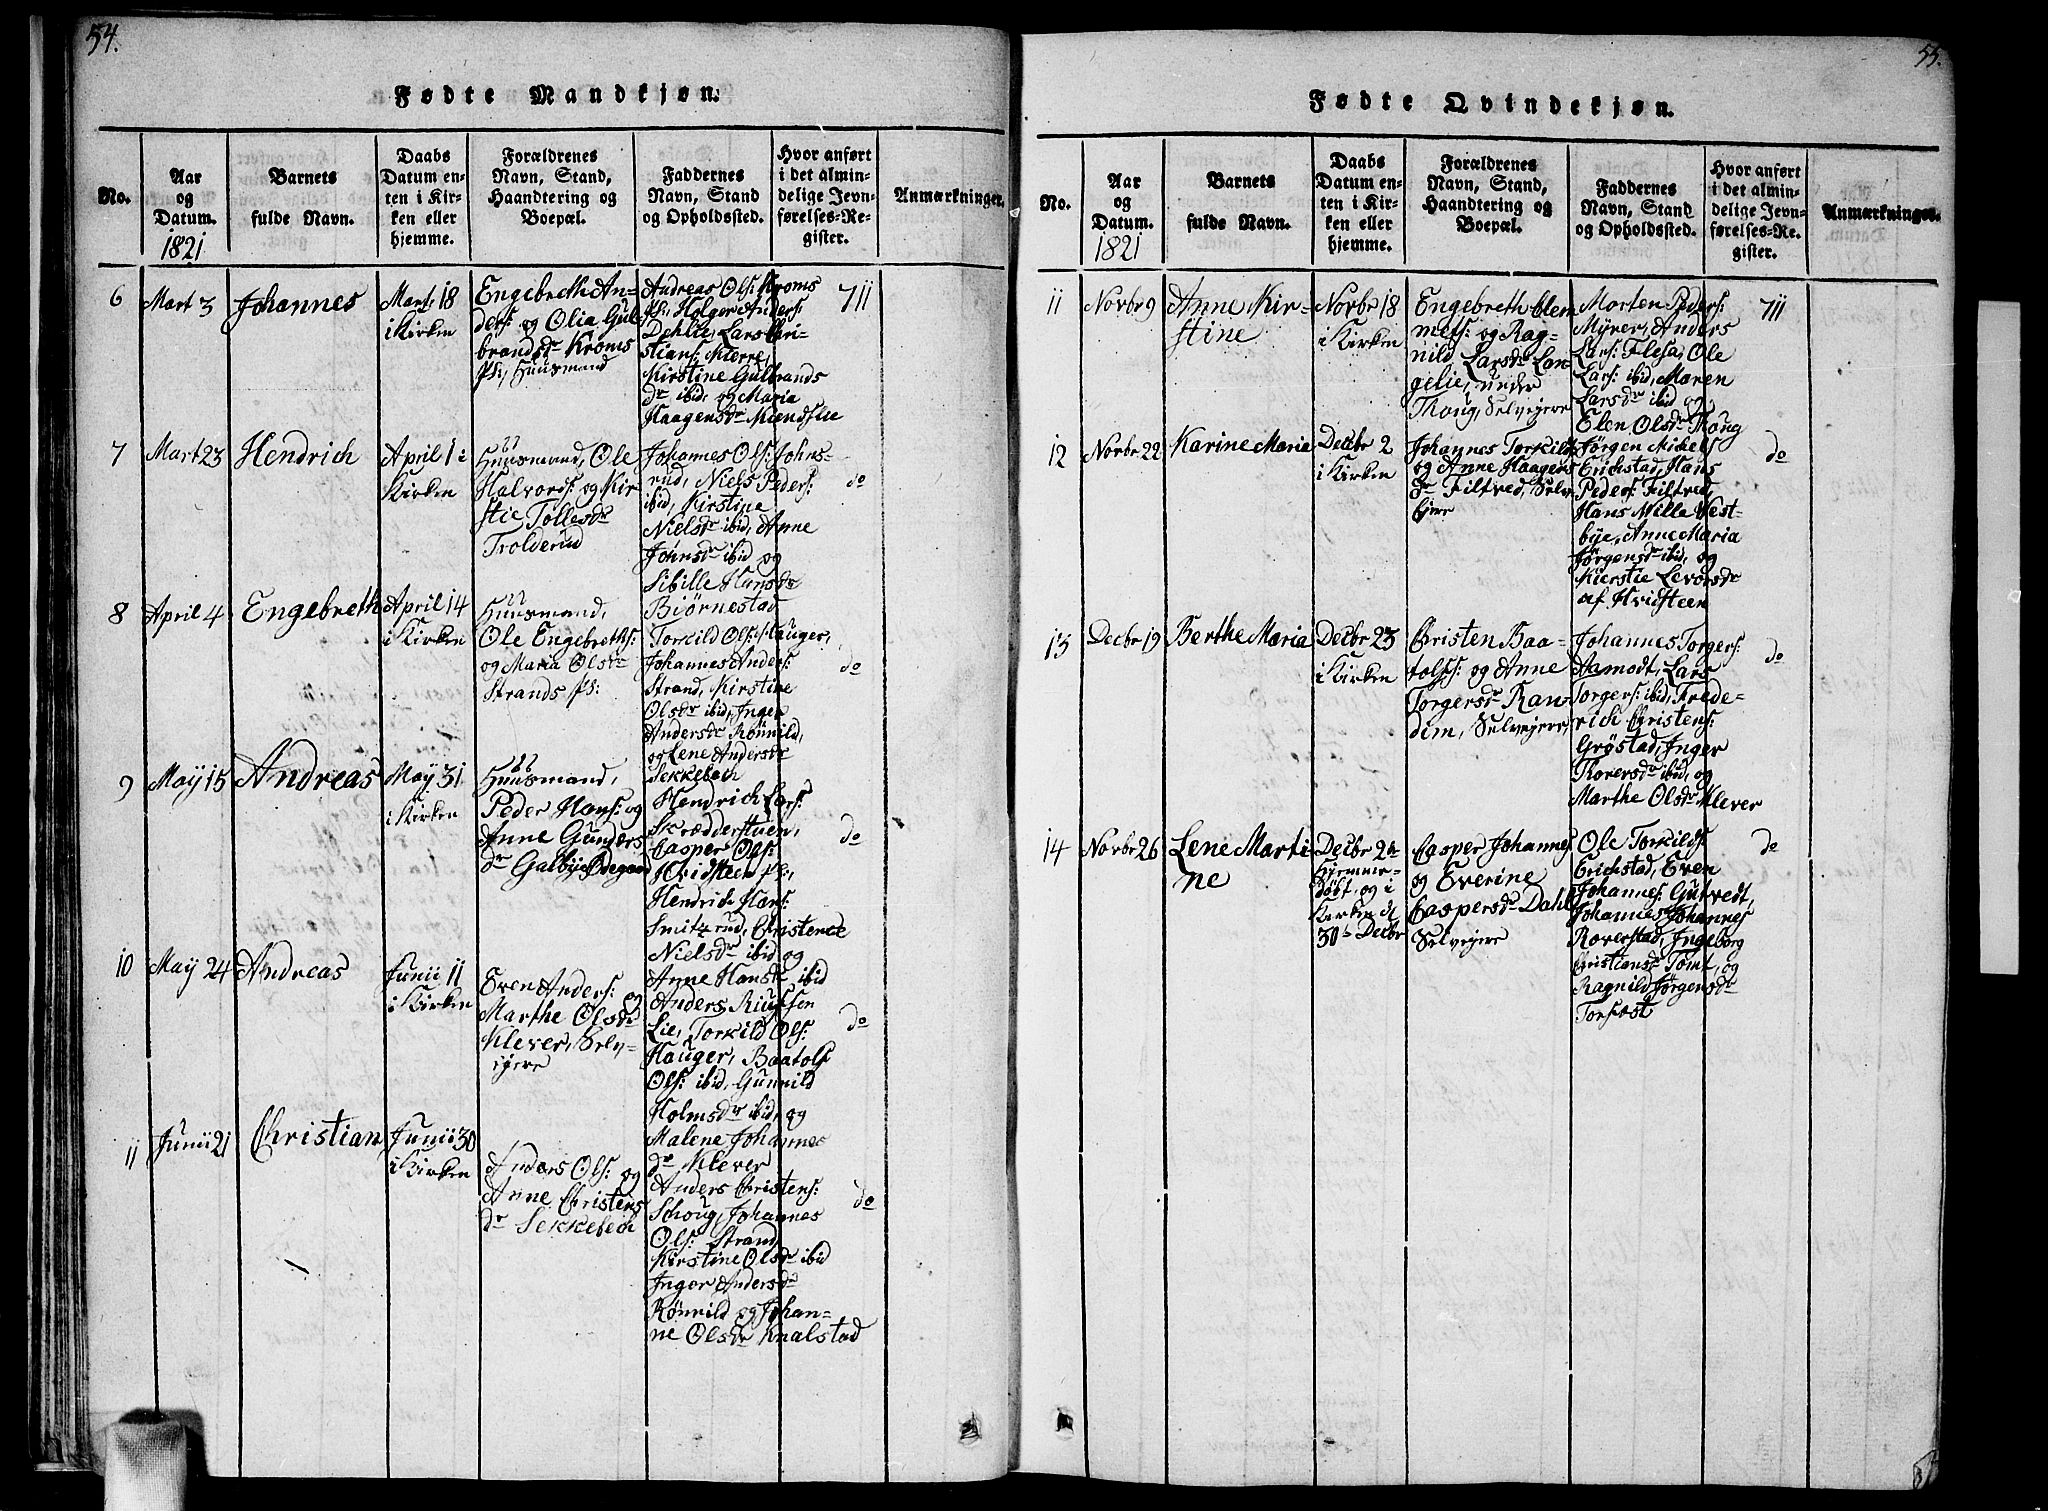 54.
Fødte Mandkjøn.
No.
Aar
og
Datum.
1821
Barnets
fulde Navn.
Daabs
Datum en-
ten i Kir-
ken eller
hjemme.
Forældrenes
Navn, Stand,
Haandtering og
Boepæl.
Faddernes
Navn, Stand
og Opholdssted.
Hvor anført
i det almin-
delige Jevn-
førelses-Re-
gister.
Anmærkninger.
6
Mart 3
Johannes
Marts 18
i Kirken
Engebreth An-
ders: og Olia Gul-
brandsdr Kroms
Ps:, Huusmand
Andreas Ols: Kroms
Ps: Holger Anders:
Dehlie, Lars Chri-
stians: Kierre,
Kirstine Gulbrands
dr ibid, og Maria
Haagensdr Miendslie
711
7
Mart 23
Hendrich
April 1 i
Kirken
Huusmand, Ole
Halvors: og Kir-
stie Tollesdr
Trolderud
Johannes Ols: Johns-
rud, Niels Peders:
ibid, Kirstine
Nielsdr ibid, Anne
Johnsdr ibid og
Sibille Hansdr
Biørnestad
do
8
April 4
Engebreth
April 14
i Kirken
Huusmand,
Ole Engebreths:
og Maria Olsdr
Strands Ps:
Torkild Ols: Hauger,
Johannes Anders:
Strand, Kirstine
Olsdr ibid, Inger
Andersdr Rønnild,
og Lene Andersdr
Sekkelech
do
9
May 15
Andreas
May 31
i Kirken
Huusmand,
Peder Hans: og
Anne Gunders
dr Galbye
Hendrich Lars:
Skrædderstuen,
Casper Ols:
Hvidsteen Ps:,
Hendrich Hans:
Smitzrud, Christence
Nielsdr ibid og
Anne Hansdr ibid
do
10
May 24
Andreas
Junii 11
i Kirken
Even Anders: og
Marthe Olsdr
Klever, Selv-
ejere
Anders
Lie, Torkild Ols:
Hauger, Baatols
Ols: ibid, Gunnild
Holmsdr ibid, og
Malene Johannes
dr Klever
do
11
Junii 21
Christian
Junii 30
i Kirken
Anders Ols: og
Anne Christens
dr Sekkelech
Anders Christens:
Schoug, Johannes
Ols: Strand,
Kirstine Olsdr ibid
Inger Andersdr
Rønnild og Johan-
ne Olsdr Knalstad
do
55.
Fødte Qvindekjøn.
No.
Aar
og
Datum.
1821
Barnets
fulde Navn.
Daabs
Datum en-
ten i Kir-
ken eller
hjemme.
Forældrenes
Navn, Stand,
Haandtering og
Boepæl.
Faddernes
Navn, Stand
og Opholdssted.
Hvor anført
i det almin-
delige Jevn-
førelses-Re-
gister.
Anmærkninger.
11
Novbr 9
Anne Kir-
stine
Novbr 18
i Kirken
Engebreth Clem-
mets: og Rag-
nild Larsdr Lan-
gelie, under
Thoug, Selvejere
Morten Peders:
Myrer, Anders
Lars: Flesa, Ole
Lars: ibid, Maren
Larsdr ibid og
Elen Olsdr Thoug
711
12
Novbr 22
Karine Maria
Decbr 2
i Kirken
Johannes Torkilds
og Anne Haagens
dr Filtved, Selv-
ejere
Jørgen Mickels
Erichstad, Hans
Peders: Filtved,
Hans Mille Vest-
bye, Anne Maria
Jørgensdr ibid, og
Kierstie Levorsdr
af Hvidsteen
do
13
Decbr 19
Berthe Maria
Decbr 23
i Kirken
Christen Baa-
tolfs: og Anne
Torgersdr Ran-
dem, Selvejere,
Johannes Torgers:
Aamodt, Lars
Torgers: ibid, Frede-
rich Christens:
Grøstad, Inger
Thoresdr ibid, og
Marthe Olsdr Klever
do
14
Novbr 26
Lene Marti
ne
Decbr 2n
Hjemme-
døbt, og i
Kirken d
30te Decbr
Casper Johannes
og Everine
Caspersdr Dahl,
Selvejere
Ole Torkilds
Erichstad, Even
Johannes: Gutvedt,
Johannes Johannes
Roverstad, Ingeborg
Christiansdr Tomt, og
Ragnild Jørgensdr
Torfæst
do